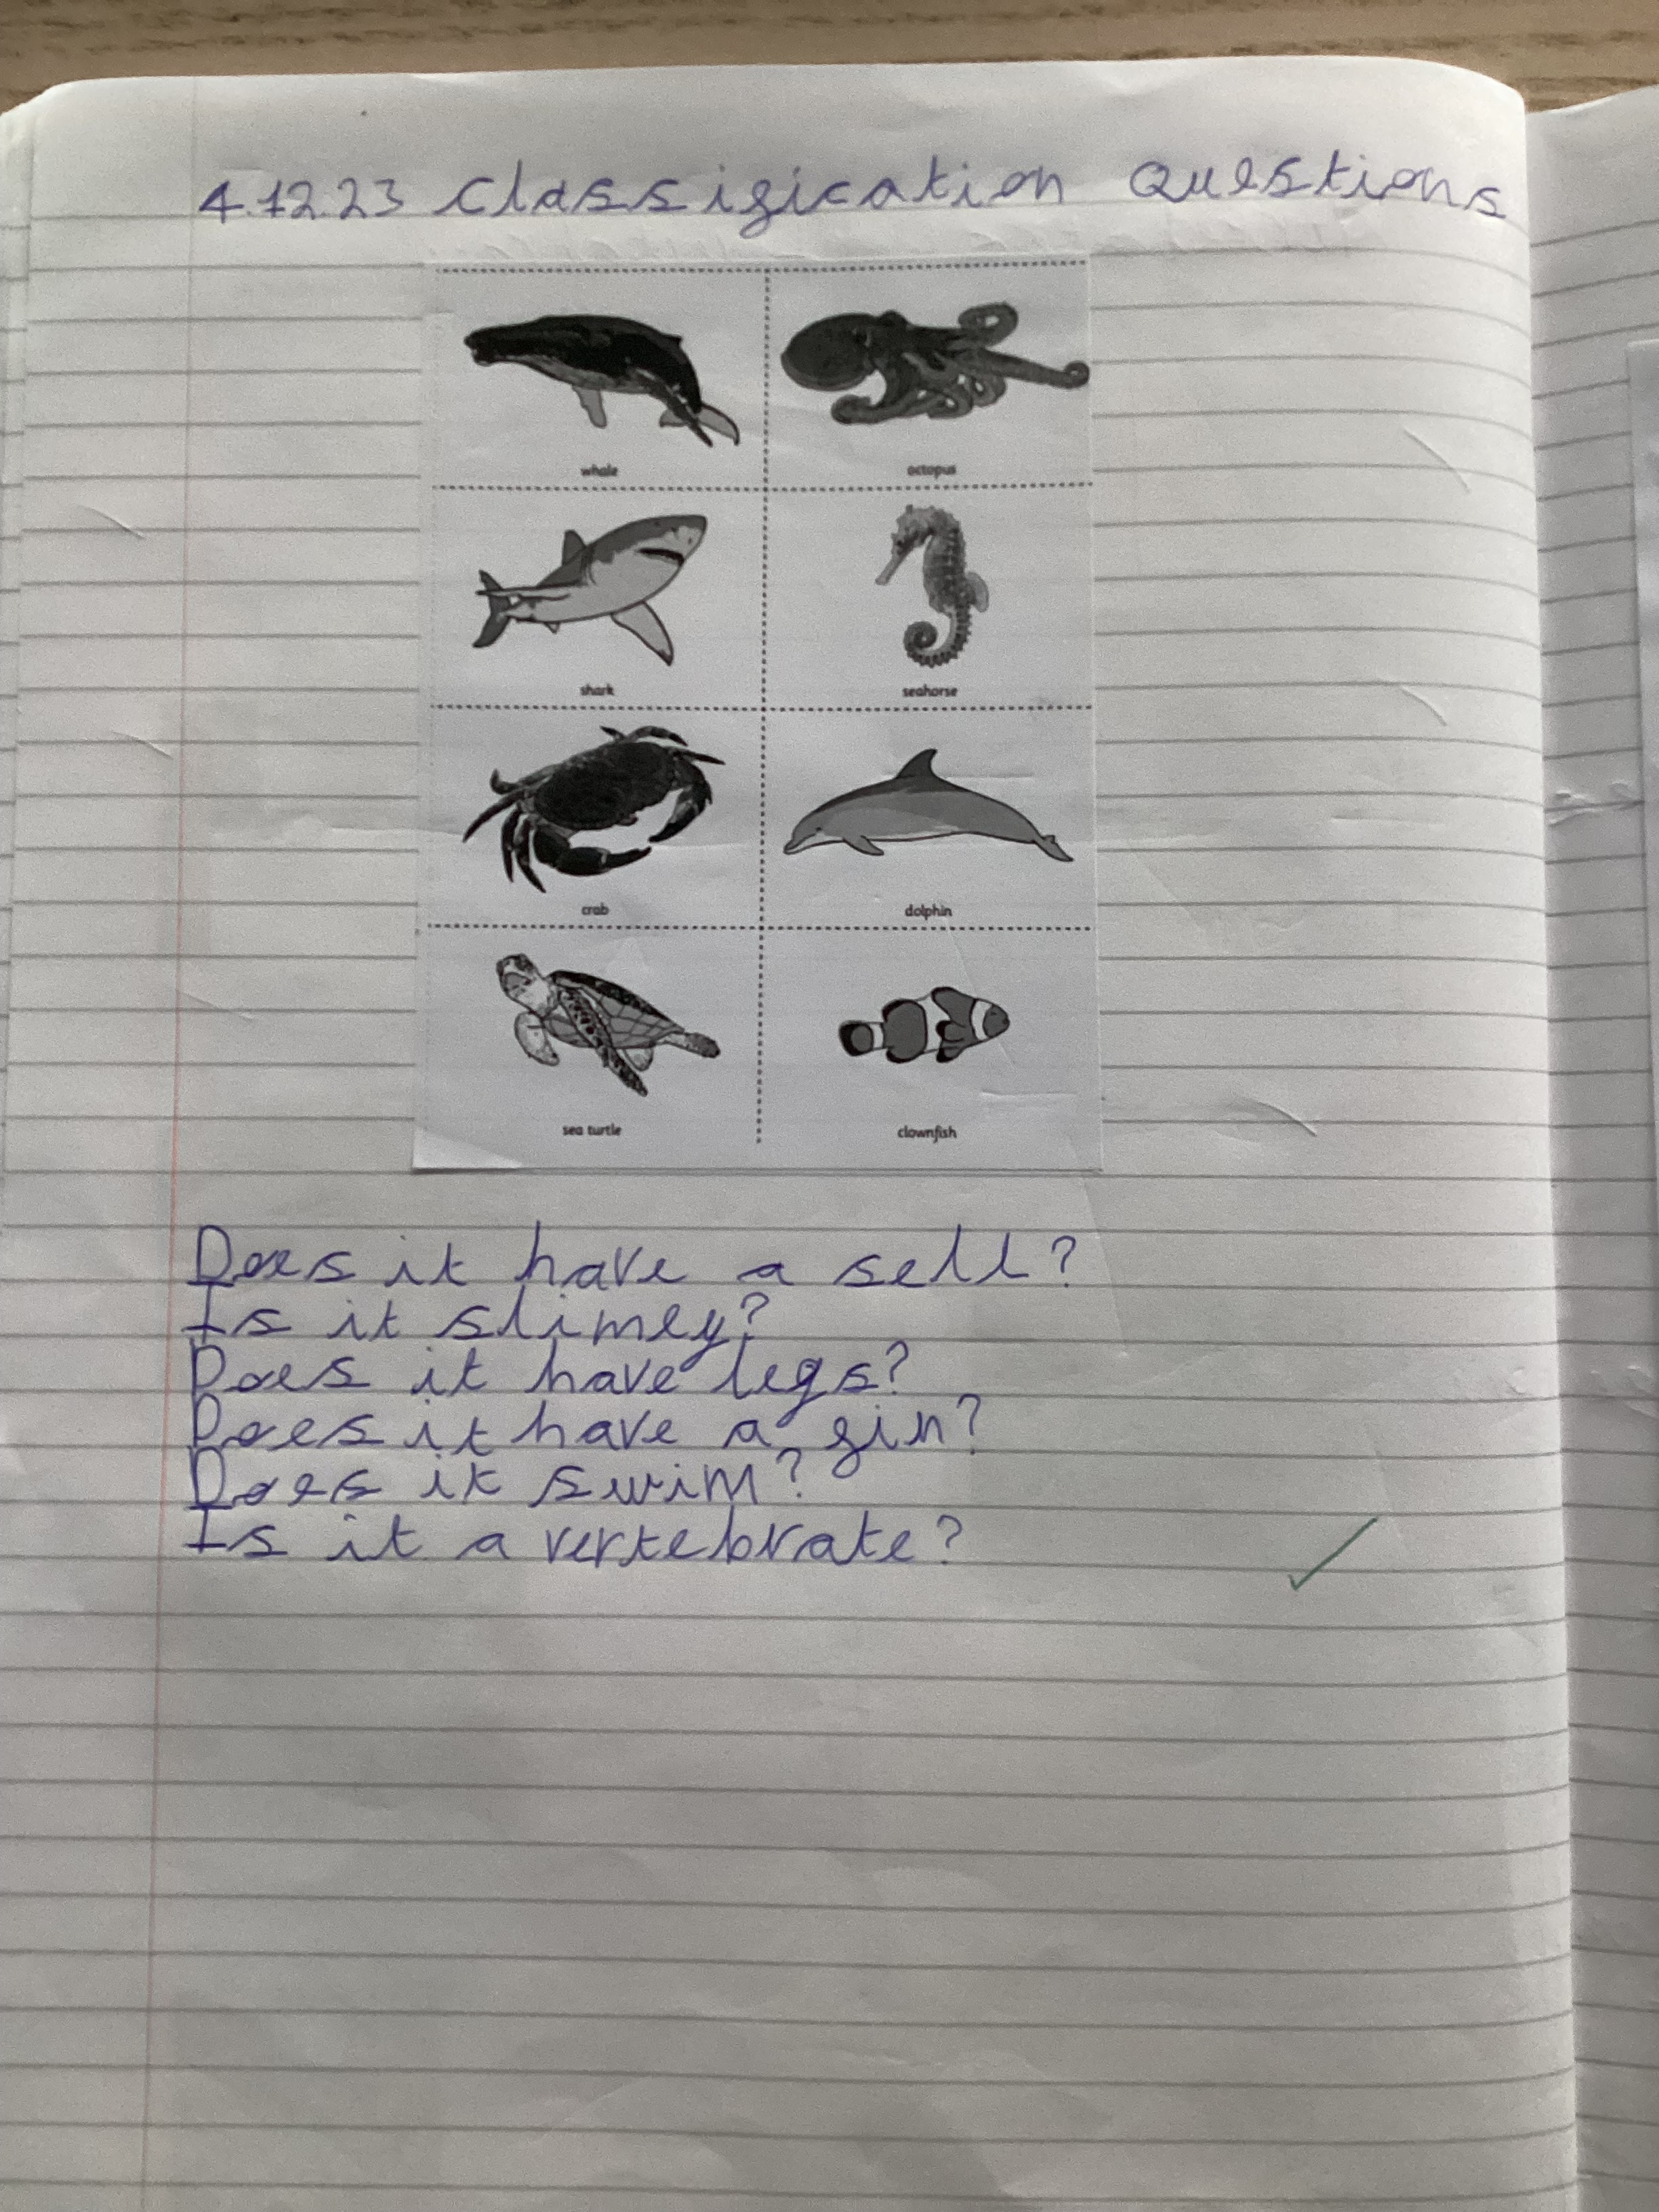 4.12.23 Classification Questions
whale octopus
shark seahorse
crab dolphin
sea turtle clownfish
Does it have a sell?
Is it slimey?
Does it have legs?
Does it have a fin?
Does it swim?
Is it a vertebrate?